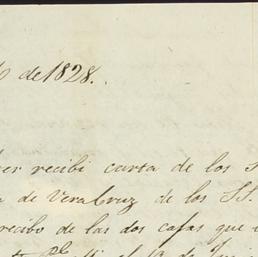 de 1828.
recibi carta de los
de VeraCruz de los SS.
recibo de las dos cajas que
el 19 de